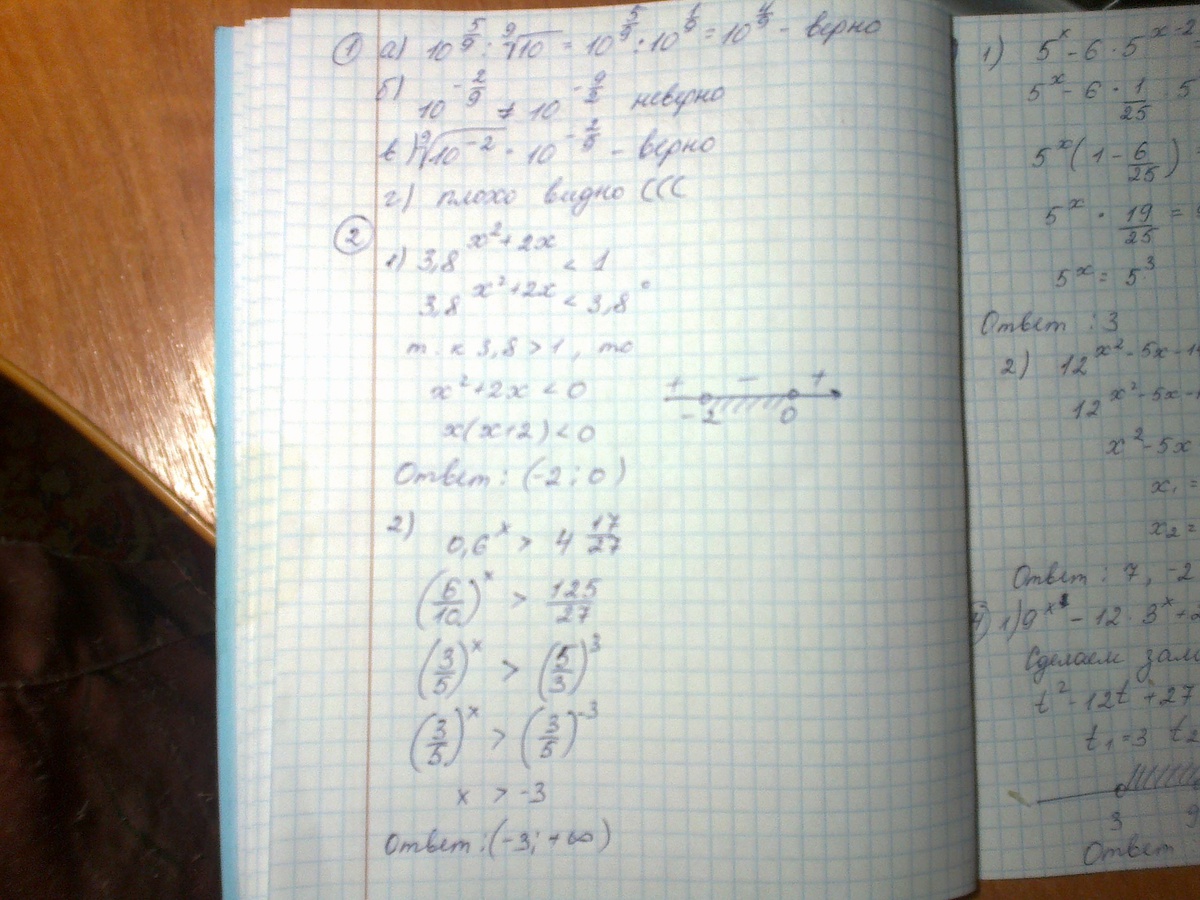 ① а) 10^(5/9) : ⁹√10 = 10^(5/9) : 10^(1/9) = 10^(4/9) - верно
б) 10^(-2/9) ≠ 10^(-9/2) неверно
в) ⁹√(10^(-2)) = 10^(-2/9) - верно
г) плохо видно (((
②
1) 3,8^(x²+2x) < 1
3,8^(x²+2x) < 3,8°
т. к 3,8 > 1, то
x²+2x < 0
+ − +
x(x+2) < 0
-2 0
Ответ: (-2; 0)
2)
0,6^x > 4 17/27
(6/10)^x > 125/27
(3/5)^x > (5/3)^3
(3/5)^x > (3/5)^(-3)
x > -3
Ответ: (-3; +∞)
1) 5^x - 6 · 5^(x-2)
5^x - 6 · 1/25 5
5^x (1 - 6/25) =
5^x · 19/25 =
5^x = 5^3
Ответ: 3
2) 12^(x²-5x-1
12^(x²-5x-
x²-5x
x₁ =
x₂ =
Ответ: 7, -2
1) 9^x - 12 · 3^x + 2
Сделаем зам
t² - 12t + 27
t₁ = 3 t₂
3 9
Ответ